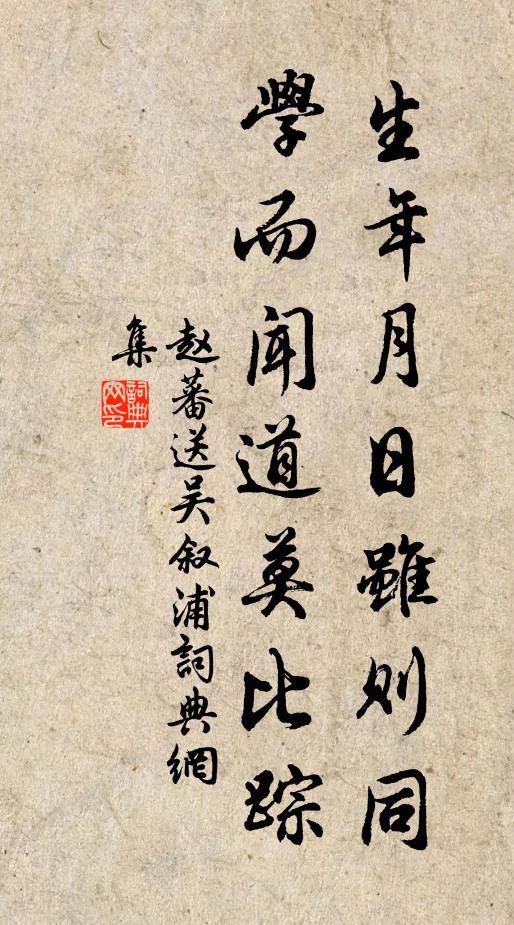 生年月日雖则同
學而闻道莫比踪
赵蕃送吴叙浦詞典網
集
詞典
网印